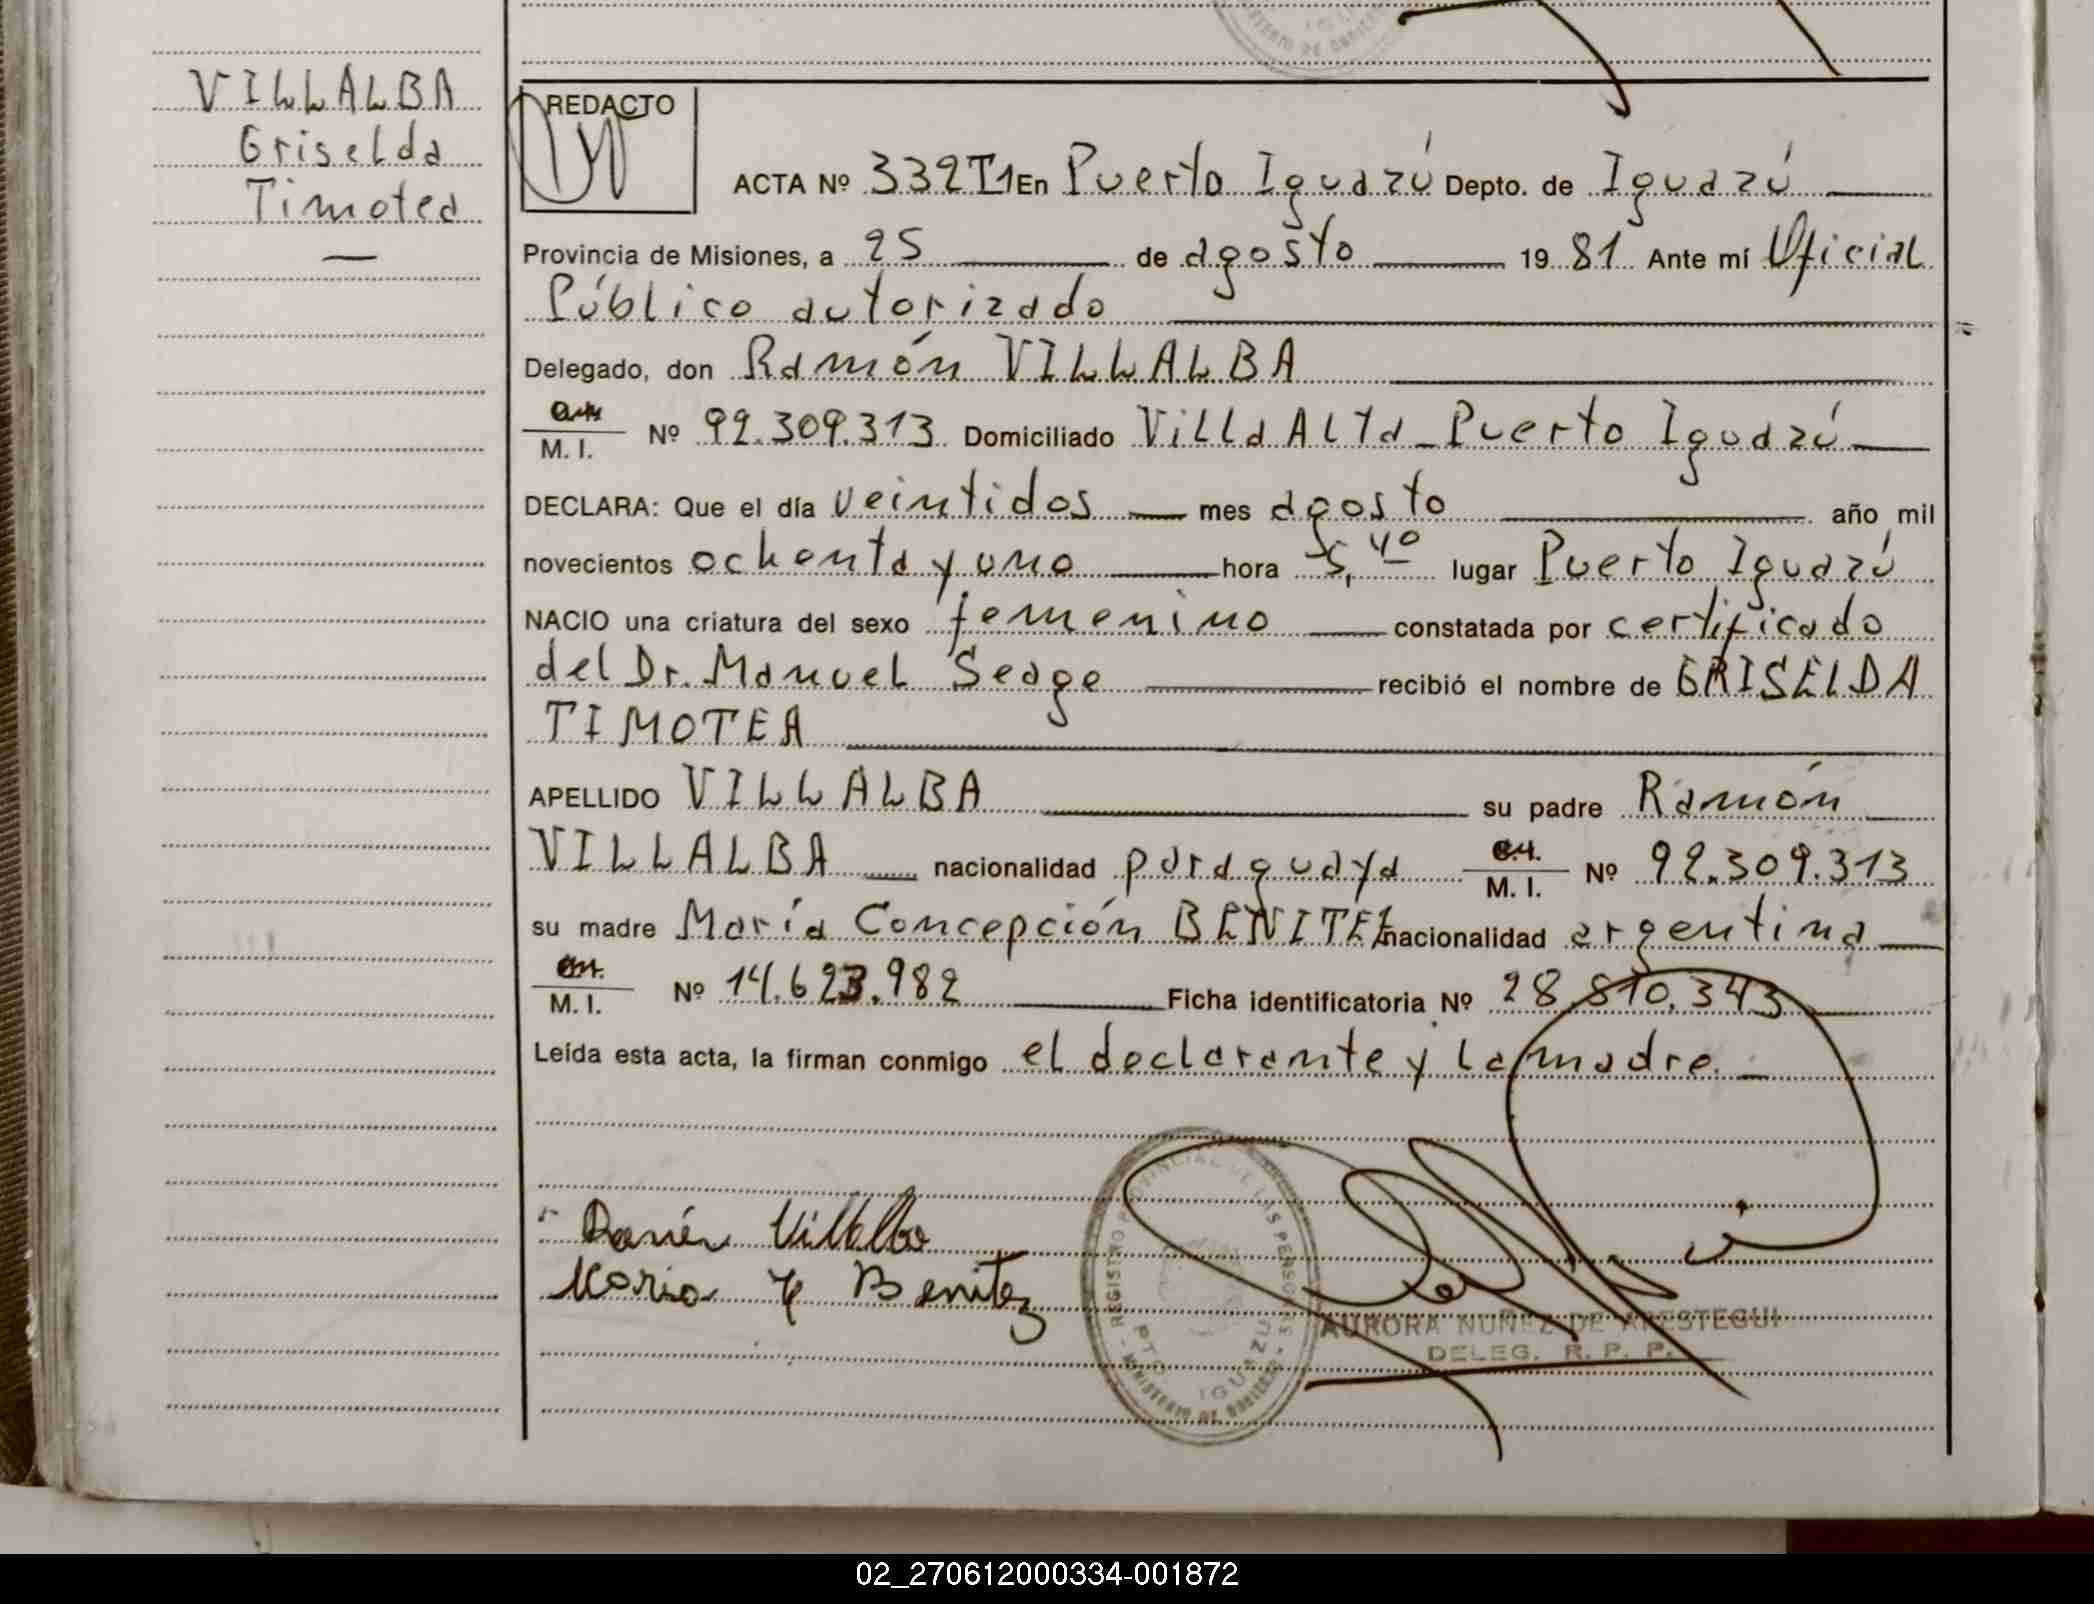 VILLALBA
Griselda
Timotea
—
REDACTO
ACTA Nº 332T1 En Puerto Iguazú Depto. de Iguazú
Provincia de Misiones, a 25 de agosto 1981 Ante mí Oficial
Público autorizado
Delegado, don Ramón VILLALBA
M. I. Nº 92.309.313 Domiciliado Villa Alta - Puerto Iguazú
DECLARA: Que el día veintidos mes agosto año mil
novecientos ochenta y uno hora 5,40 lugar Puerto Iguazú
NACIO una criatura del sexo femenino constatada por certificado
del Dr. Manuel Seage recibió el nombre de GRISELDA
TIMOTEA
APELLIDO VILLALBA su padre Ramón
VILLALBA nacionalidad paraguaya M. I. Nº 92.309.313
su madre María Concepción BENITEZ nacionalidad argentina
M. I. Nº 14.623.982 Ficha identificatoria Nº 28.810.343
Leída esta acta, la firman conmigo el declarante y la madre. -
Villalba
Maria Benitez
REGISTRO PROVINCIAL DE LAS PERSONAS
PTO IGUAZU
MINISTERIO DE GOBIERNO
AURORA NUÑEZ DE ARESTEGUI
DELEG. R. P. P.
02_270612000334-001872